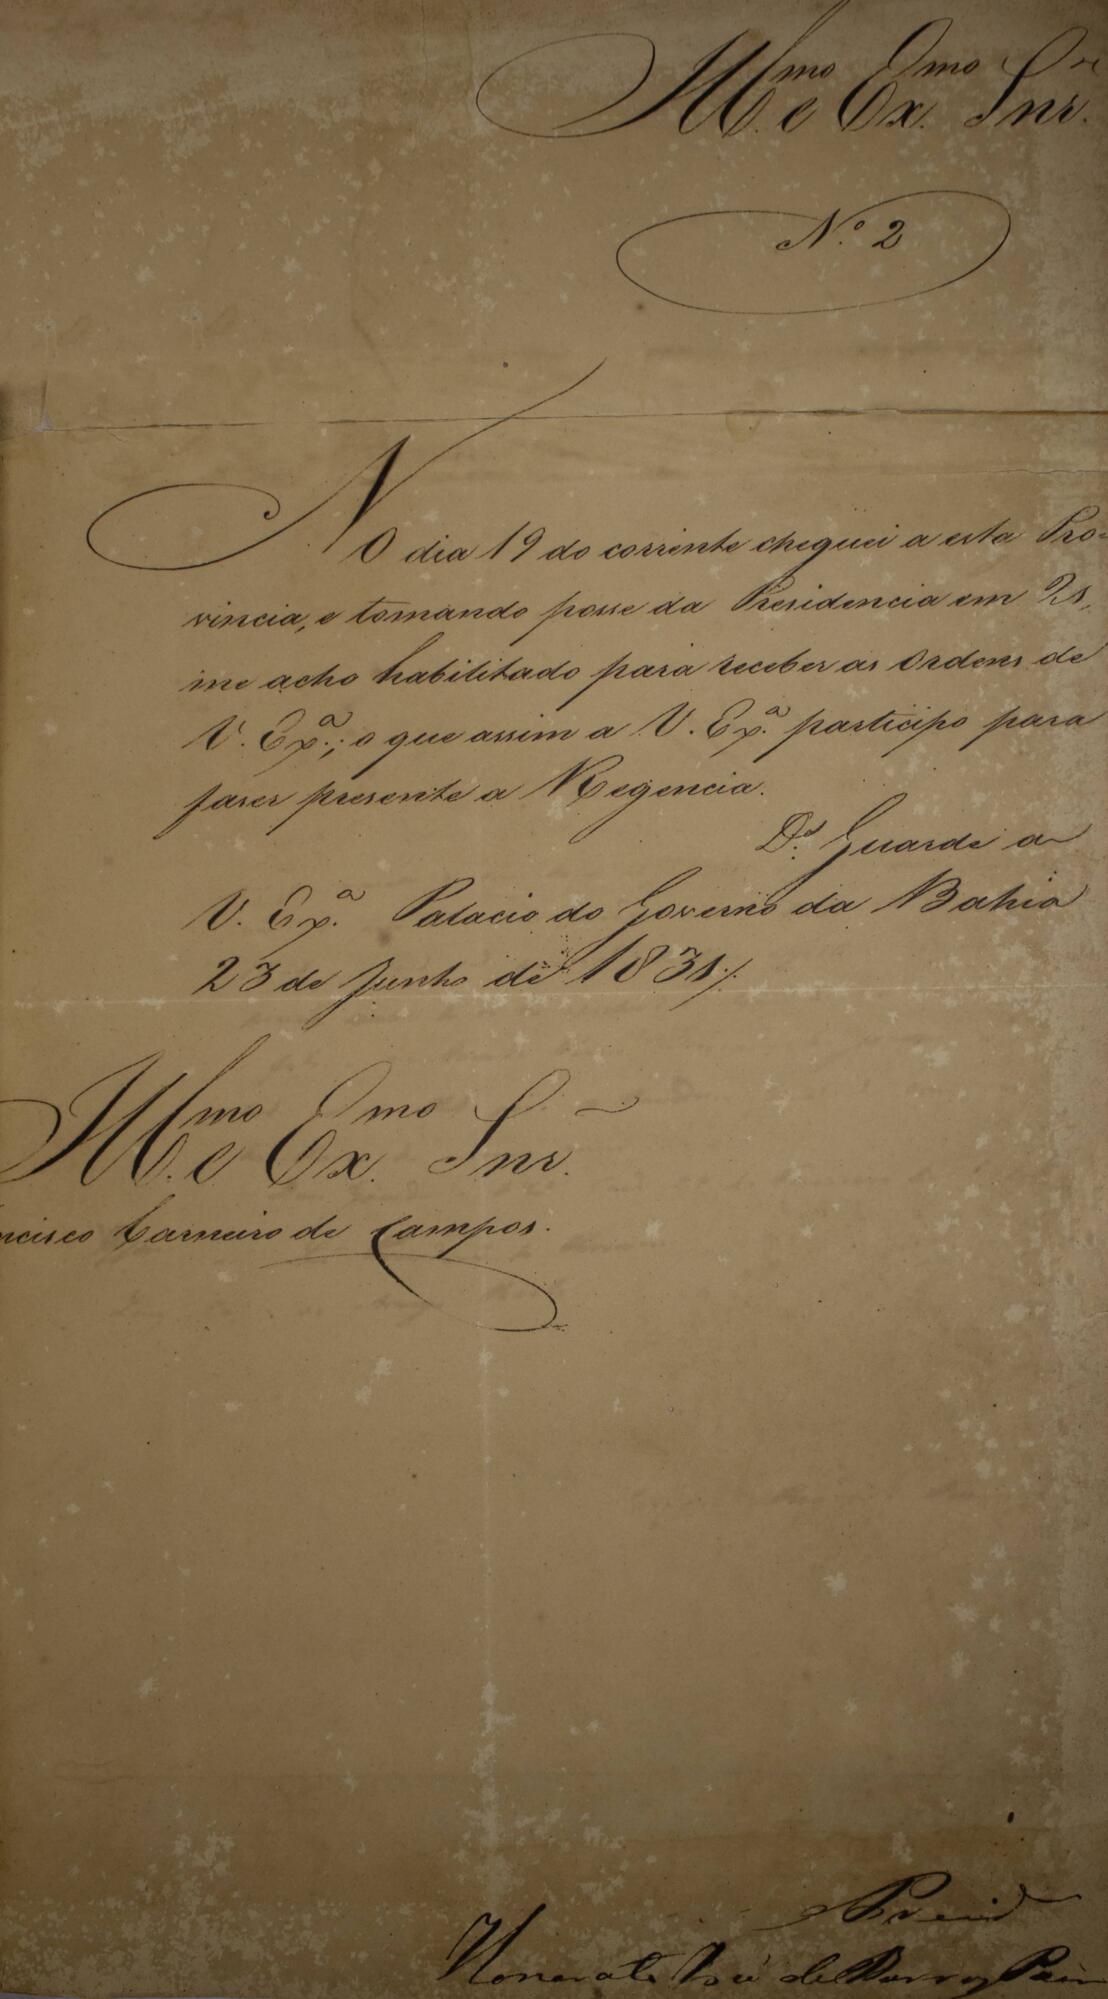 Illmo e Exmo Snr.
N.º 2
NO dia 19 do corrente cheguei a esta Pro-
vincia, e tomando posse da Presidencia em 21,
me acho habilitado para receber as Ordens de
V. Exª.; o que assim a V. Exª. participo para
faser presente a Regencia.
D.s Guarde a
V. Exª. Palacio do Governo da Bahia
23 de Junho de 1831./.
Illmo e Exmo Snr.
ncisco Carneiro de Campos.
Presid
Honorato José de Barros Paim